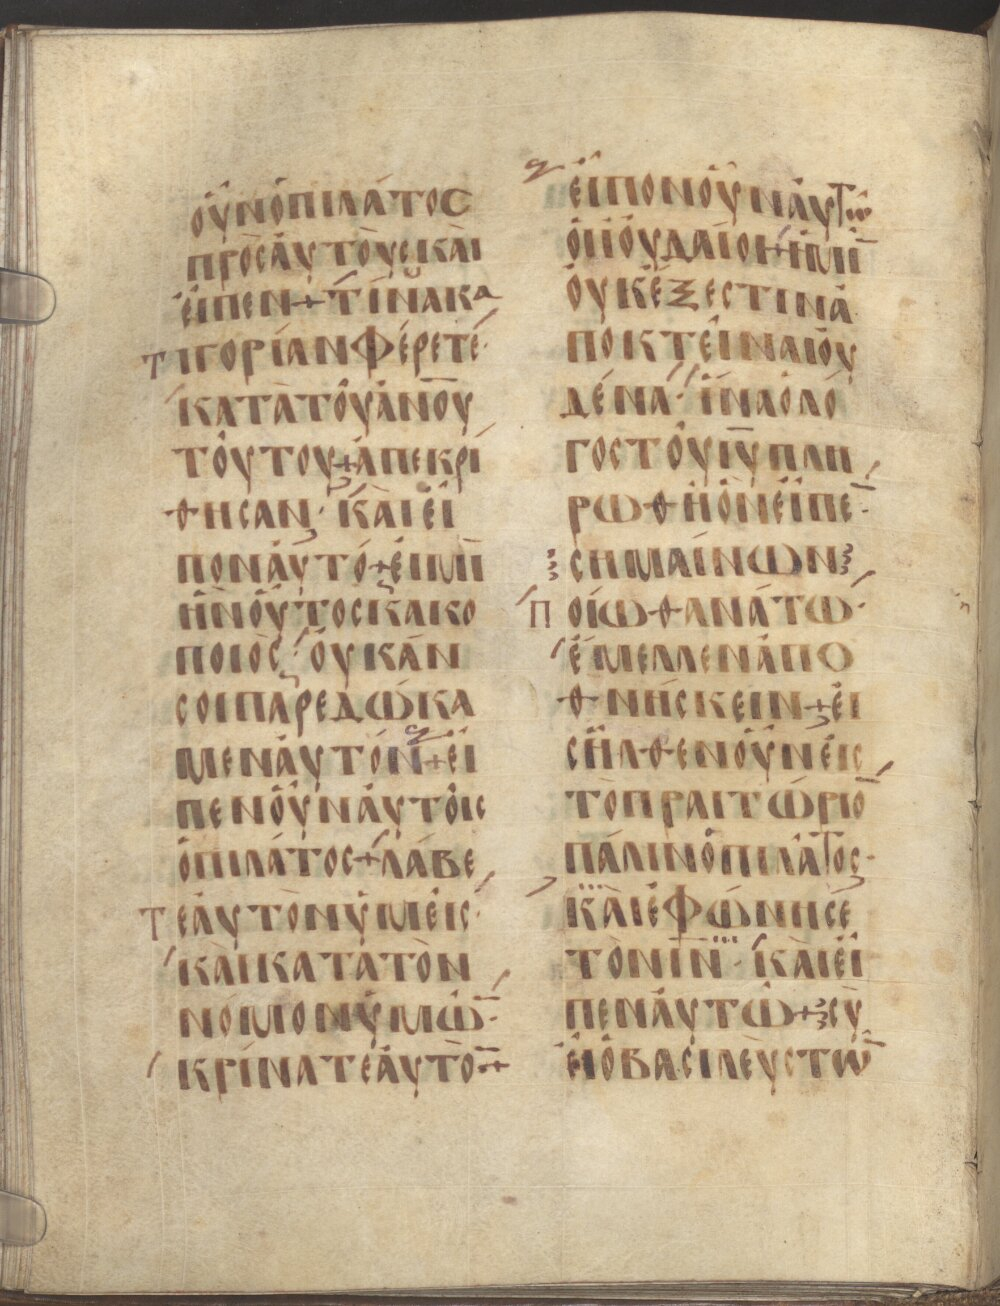 ὀῦνὁπιλάτος
πρὸςἀυτοὺςκαὶ
εἶπεν+τίνακα
τιγορίανφέρετε·
κατὰτοῦἀν̅ου
τούτου+ἀπεκρί
θησαν·καὶεἶ
πονἀυτό+ἐιμὶ
ἦνοὗτοςκακο
ποιὸς·οὐκἄν
σοιπαρεδώκα
μεναὐτόν+εἶ
πενοὖναὐτοῖς
ὁπιλάτος+λάβε
τεἀυτὸνὑμεῖς·
καὶκατατὸν
νόμονὑμῶ̅·
κρίνατεἀυτὸ̅+
εἶπονοὖναυτῶ
ὁιἰουδαῖοι+ἡμῖ̅
οὐκἔξεστινἀ
ποκτεῖναιοὐ
δένα·ἵναὁλό
γοςτοῦιυ̅πλη
ρωθῆὃνεἶπε̅·
σημαίνων
ποίωθανάτω·
ἔμελλενἀπο
θνήσκειν+εἰ
σῆλθενοὖνεἰς
τοπραιτώριο̅
πάλινὁπιλάτος·
καὶἐφώνησε
τὸνιν̅·καὶεἶ
πεναυτῶ+σὺ
εἶὁβασιλεὺςτῶ̅